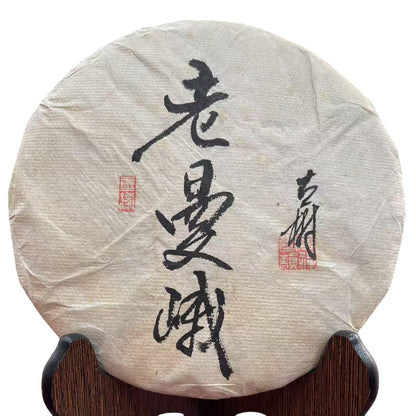 老曼峨
古树